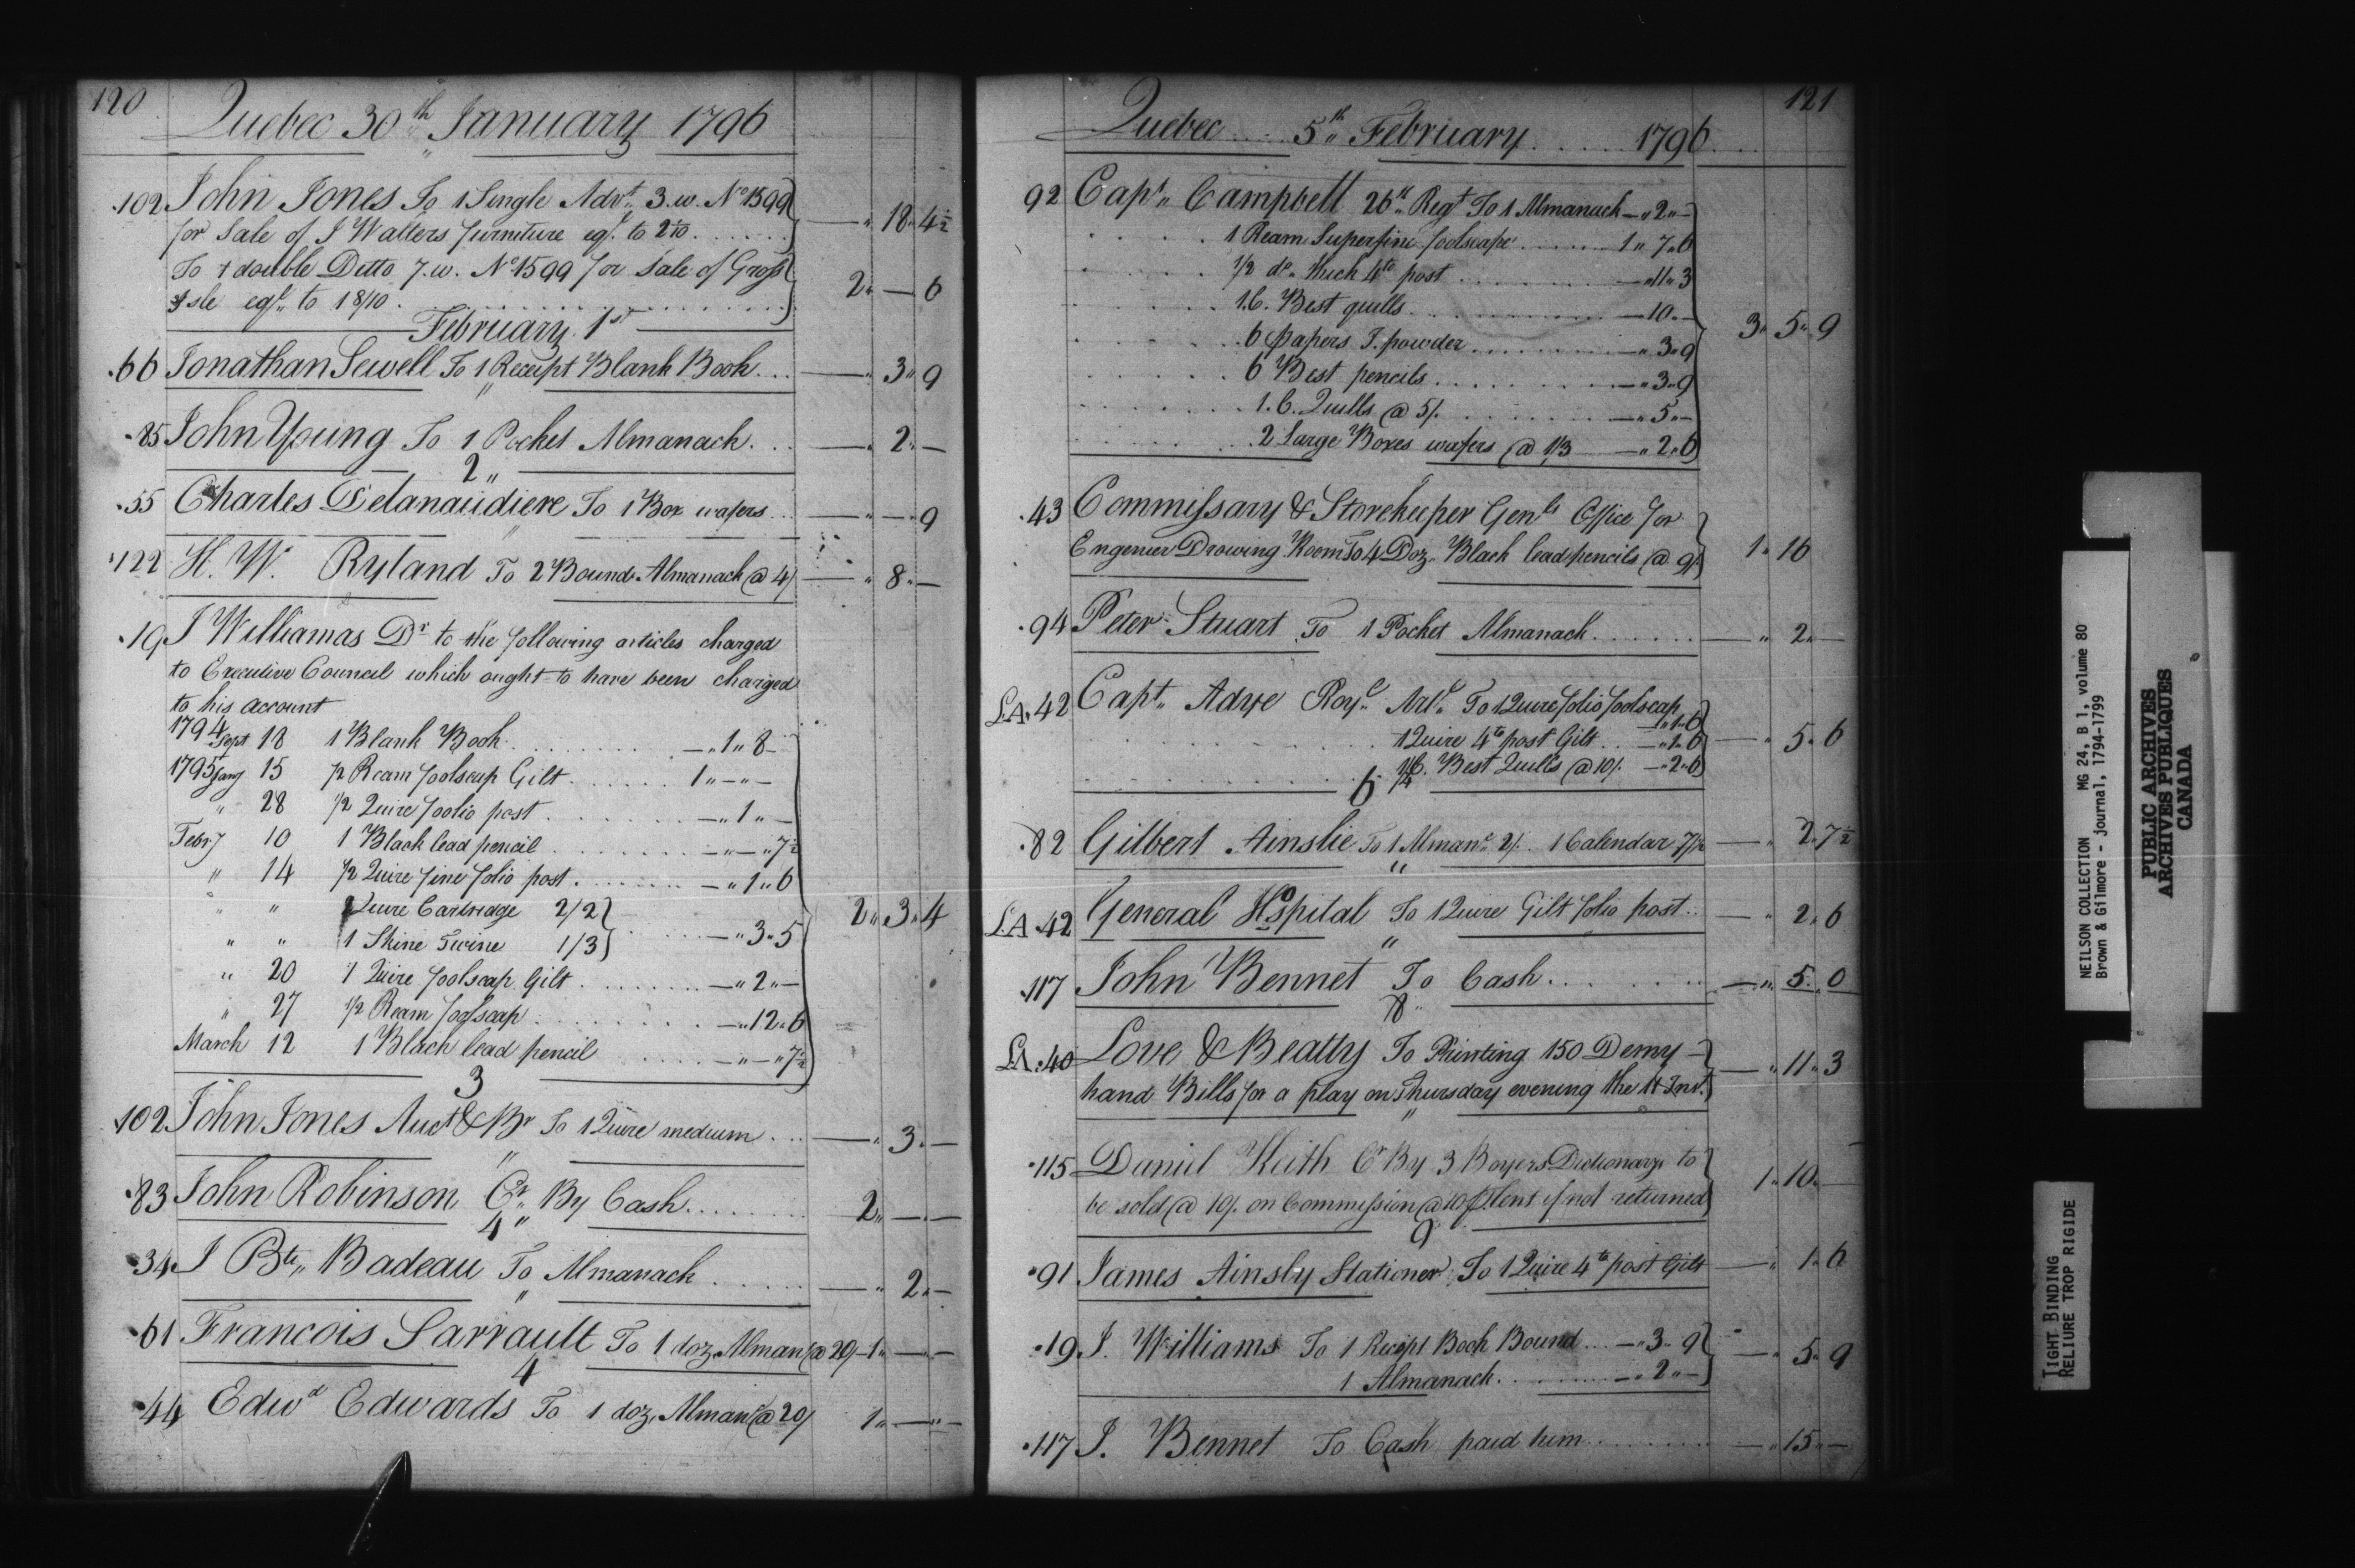 120
Quebec 30th January 1796
102 John Jones To 1 Single Advt. 3.w. No 1599 — " 18 " 4½
for Sale of J Walters furniture eql. to
To 1 double Ditto 7.w. No 1599 for Sale of Gross 2 " — 6
Isle eql. to 18/10
February 1st
66 Jonathan Sewell To 1 Receipt Blank Book — " 3 " 9
85 John Young To 1 Pocket Almanack — " 2 " —
2 "
55 Charles Delanaudiere To 1 Box wafers — " — 9
122 H. W. Ryland To 2 Bound Almanack @ 4/ — " 8 " —
19 J Williamas Dr to the following articles charged
to Executive Council which ought to have been charged
to his account
1794 Sept 18 1 Blank Book — " 1 " 8
1795 Jany 15 ½ Ream foolscap Gilt 1 " — " —
" 28 ½ Quire foolio post — " 1 " —
Febry 10 1 Black lead pencil — " — " 7½
" 14 ½ Quire fine folio post — " 1 " 6
" " Quire Cartridge 2/2 2 " 3 " 4
" " 1 Skine Twine 1/3 — " 3 " 5
" 20 1 Quire foolscap Gilt — " 2 " —
" 27 ½ Ream foolscap — " 12 " 6
March 12 1 Black lead pencil — " — " 7½
3
102 John Jones Auct & Br To 1 Quire medium — " 3 " —
"
83 John Robinson Cr. By Cash 2 " — " —
4 "
34 J Bte. Badeau To Almanack — " 2 " —
"
61 Francois Sarrault To 1 doz. Alman @ 20/ 1 " — " —
4
44 Edwd Edwards To 1 doz. Alman @ 20/ 1 " — " —
121
Quebec 5th February 1796
92 Capt. Campbell 26th Regt To 1 Almanack — " 2 " —
1 Ream Superfine foolscape 1 " 7 " 6
1/2 do. thick 4to post — " 11 " 3
1.C. Best quills — 10 " —
6 papers I. powder — " 3 " 9 3 " 5 " 9
6 Best pencils — " 3 " 9
1.C. Quills @ 5/. — " 5 " —
2 Large Boxes wafers @ 1/3 — " 2 " 6
43 Commissary & Storekeeper Genls Office for
Engenier Drowing Room To 4 Doz. Black lead pencils @ 9/. 1 " 16
94 Peter Stuart To 1 Pocket Almanack — " 2 " —
L.A. 42 Capt. Adye Royl. Artl. To 1 Quire folio foolscap
— " 1 " 6
1 Quire 4to post Gilt — " 1 " 6 — " 5 " 6
¼C. Best Quills @ 10/. — " 2 " 6
6
82 Gilbert Ainslie To 1 Almanc. 2/. 1 Calendar 7½ — " 2 " 7½
"
L.A. 42 General Hospital To 1 Quire Gilt folio post — " 2 " 6
"
117 John Bennet To Cash — " 5 " 0
8 "
LA. 40 Love & Beatty To Printing 150 Demy — " 11 " 3
hand Bills for a play on Thursday evening the 11 Inst.
"
115 Daniel Keith Cr By 3 Boyers Dictionarys to 1 " 10 " —
be sold @ 10/. on Commission @ 10 P Cent if not returned
9
91 James Ainsly Stationer To 1 Quire 4to post Gilt — " 1 " 6
19 J. Williams To 1 Recept Book Bound — " 3 " 9 — " 5 " 9
1 Almanack — " 2 " —
117 J. Bennet To Cash paid him — " 15 " —
NEILSON COLLECTION MG 24, B 1, volume 80
Brown & Gilmore - journal, 1794-1799
PUBLIC ARCHIVES
ARCHIVES PUBLIQUES
CANADA
TIGHT BINDING
RELIURE TROP RIGIDE